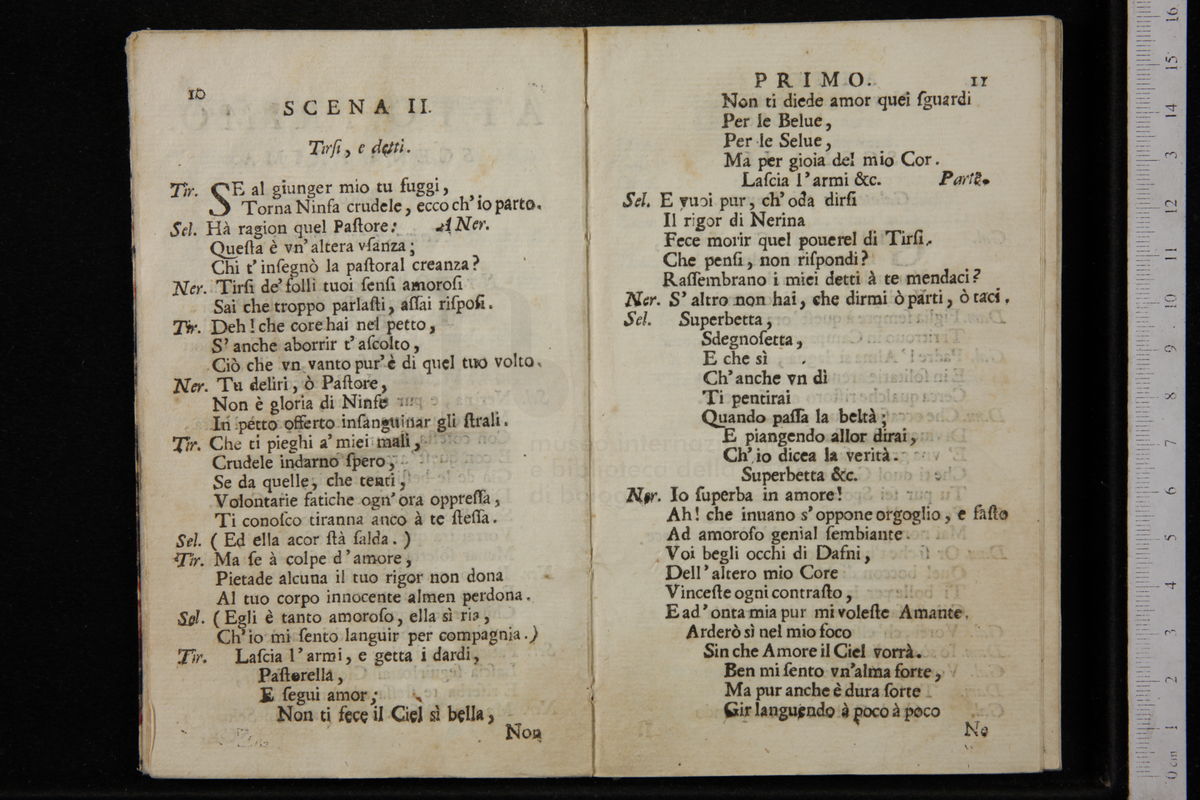 10
SCENA II.
Tirſi, e detti.
Tir. SE al giunger mio tu fuggi,
Torna Ninfa crudele, ecco ch'io parto.
Sel. Hà ragion quel Paſtore: A Ner.
Queſta è vn'altera vſanza;
Chi t'inſegnò la paſtoral creanza?
Ner. Tirſi de' folli tuoi ſenſi amoroſi
Sai che troppo parlaſti, aſſai riſpoſi.
Tir. Deh! che core hai nel petto,
S'anche aborrir t'aſcolto,
Ciò che vn vanto pur'è di quel tuo volto.
Ner. Tu deliri, ò Paſtore,
Non è gloria di Ninfe
In petto offerto inſanguinar gli ſtrali.
Tir. Che ti pieghi a' miei mali,
Crudele indarno ſpero,
Se da quelle, che tenti,
Volontarie fatiche ogn'ora oppreſſa,
Ti conoſco tiranna anco à te ſteſſa.
Sel. (Ed ella acor ſtà ſalda.)
Tir. Ma ſe à colpe d'amore,
Pietade alcuna il tuo rigor non dona
Al tuo corpo innocente almen perdona.
Sel. (Egli è tanto amoroſo, ella sì ria,
Ch'io mi ſento languir per compagnia.)
Tir. Laſcia l'armi, e getta i dardi,
Paſtorella,
E ſegui amor;
Non ti fece il Ciel sì bella,
Non
PRIMO. 11
Non ti diede amor quei ſguardi
Per le Belue,
Per le Selue,
Ma per gioia del mio Cor.
Laſcia l'armi &c. Parte.
Sel. E vuoi pur, ch'oda dirſi
Il rigor di Nerina
Fece morir quel pouerel di Tirſi.
Che penſi, non riſpondi?
Raſſembrano i miei detti à te mendaci?
Ner. S'altro non hai, che dirmi ò parti, ò taci.
Sel. Superbetta,
Sdegnoſetta,
E che sì
Ch'anche vn dì
Ti pentirai
Quando paſſa la beltà;
E piangendo allor dirai,
Ch'io dicea la verità.
Superbetta &c.
Ner. Io ſuperba in amore!
Ah! che inuano s'oppone orgoglio, e faſto
Ad amoroſo genial ſembiante.
Voi begli occhi di Dafni,
Dell'altero mio Core
Vinceſte ogni contraſto,
E ad'onta mia pur mi voleſte Amante.
Arderò sì nel mio foco
Sin che Amore il Ciel vorrà.
Ben mi ſento vn'alma forte,
Ma pur anche è dura ſorte
Gir languendo à poco à poco
Ne